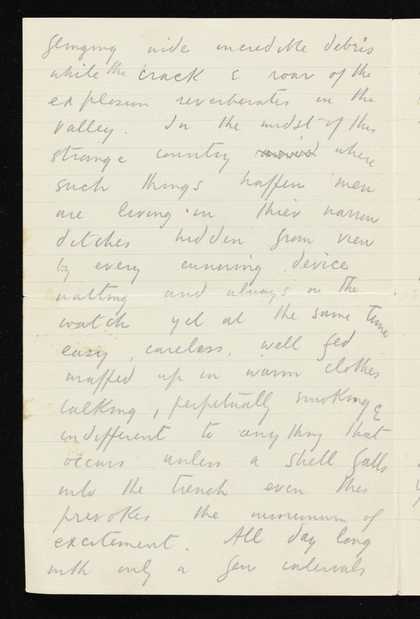 flinging wide incredible debris
while the crack & roar of the
explosion reverberates in the
valley. In the midst of this
strange country where
such things happen men
are living in their narrow
ditches hidden from view
by every cunning device
waiting and always on the
watch yet at the same time
easy, careless, well fed
wrapped up in warm clothes
talking, perpetually smoking &
indifferent to anything that
occurs unless a shell falls
into the trench even this
provokes the minimum of
excitement. All day long
with only a few intervals